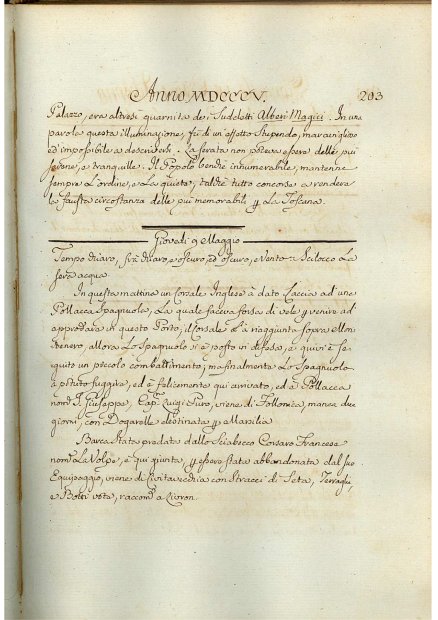 Anno MDCCCV. 203
Palazzo, era altresì guarnita de' Suddetti Alberi Magici. In una
parola questa illuminazione, fù di un' effetto Stupendo, maraviglioso
ed impossibile a descriversi. La serata non poteva essere delle più
serene, e tranquille. Il Popolo benchè innumerabile, mantenne
sempre L'ordine, e La quiete; talchè tutto concorse a rendere
la fausta circostanza delle più memorabili p La Toscana.
Giovedì 9 Maggio
Tempo chiaro, frà chiaro, e oscuro, ed oscuro, e Vento a Scilocco La
sera acqua.
In questa mattina un Corsale Inglese à dato Caccia ad una
Pollacca Spagnuola, La quale faceva forza di vele p venire ad
approdare in questo Porto, il Corsale L'à raggiunta sopra Mon
tenero, allora Lo Spagnuolo si è posto in difesa, e quivi è se
guito un piccolo combattimento; ma finalmente Lo Spagnuolo
è potuto fuggire, ed è felicemente qui arrivato, ed à Pollacca
nom S. Giuseppe, Cap Luigi Puro, viene di Follonica, manca due
giorni, con Dogarelle destinata p Marsilia
Barca Stata predata dallo Sciabecco Corsaro Francese
nom La Volpe, è qui giunta, p essere stata abbandonata dal suo
Equipaggio, viene di Civitavecchia con Stracci di Seta, Terraglie,
e Botti vote, raccom a Livron.